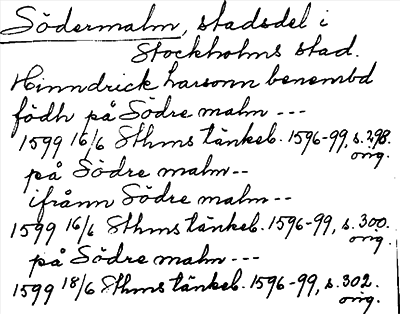 Södermalm, stadsdel i
Stockholms stad.
Hinndrick Larsonn benembd
födh på Södre malm ---
1599 16/6 Sthms tänkeb. 1596-99, s. 298.
orig.
på Södre malm--
ifrånn Södre malm--
1599 16/6 Sthms tänkeb. 1596-99, s. 300.
orig.
på Södre malm ---
1599 18/6 Sthms tänkeb. 1596-99, s. 302.
orig.